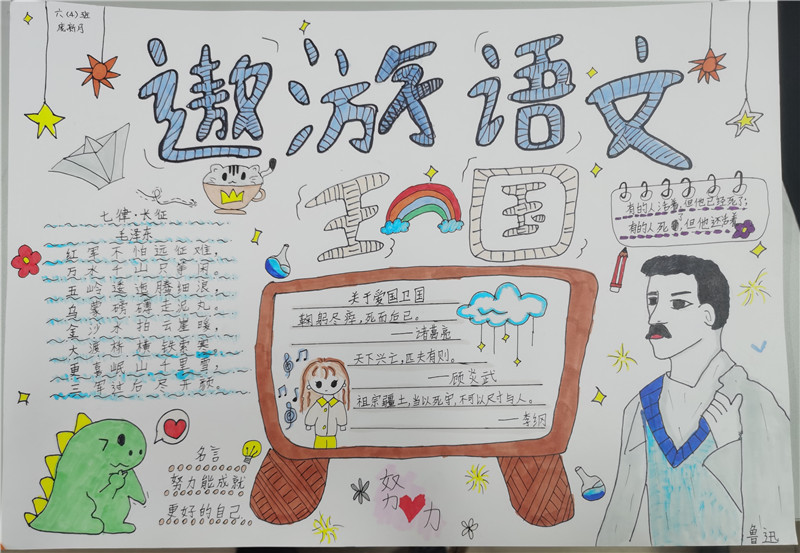 六(4)班
遨游语文
王国
七律·长征
毛泽东
红军不怕远征难,
万水千山只等闲。
五岭逶迤腾细浪,
乌蒙磅礴走泥丸。
金沙水拍云崖暖,
大渡桥横铁索寒。
更喜岷山千里雪,
三军过后尽开颜
有的人活着,但他已经死了;
有的人死了,但他还活着
关于爱国卫国
鞠躬尽瘁,死而后已。
——诸葛亮
天下兴亡,匹夫有则。
——顾炎武
祖宗疆土,当以死守,不可以尺寸与人。
——李纲
名言
努力能成就
更好的自己
努力
鲁迅